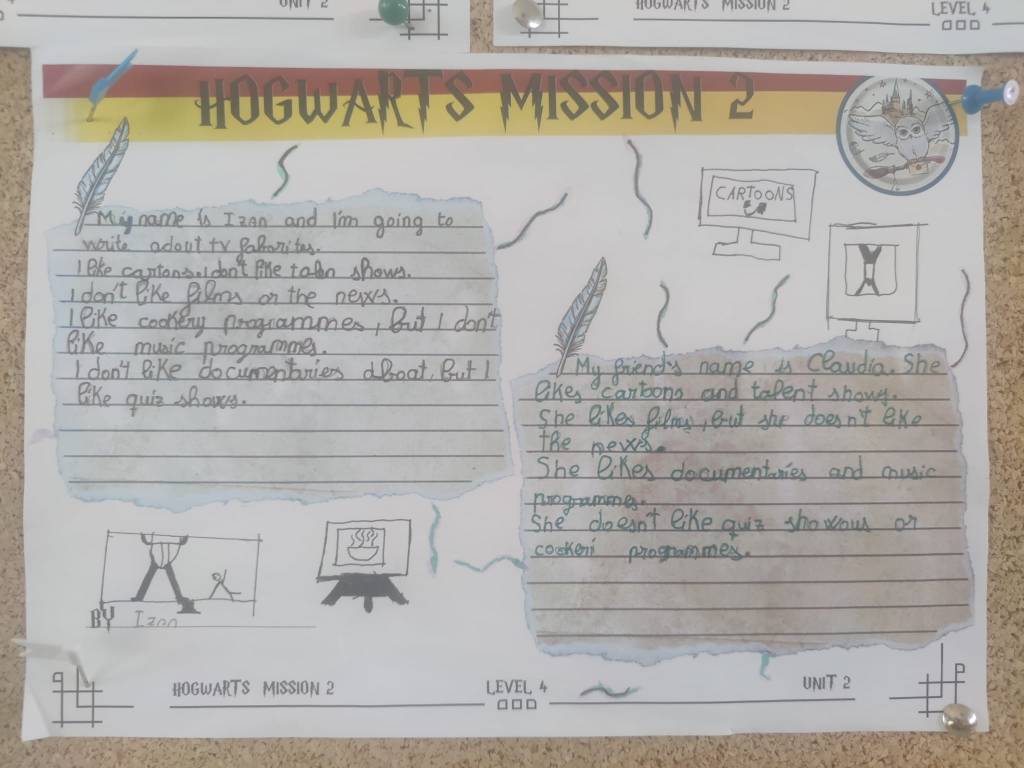 UNIT 2
HOGWARTS MISSION 2
LEVEL 4
HOGWARTS MISSION 2
My name is Izan and I'm going to
write adout tv faborites.
I like cartons. I don't like talen shows.
I don't like films or the news.
I like cookery programmes, but I don't
like music programmes.
I don't like documentaries aboat, but I
like quiz shows.
CARTOONS
My friend's name is Claudia. She
likes cartoons and talent shows.
She likes films, but she doesn't like
the news.
She likes documentaries and music
programmes.
She doesn't like quiz showous or
cookeri programmes.
BY Izan
HOGWARTS MISSION 2
LEVEL 4
UNIT 2